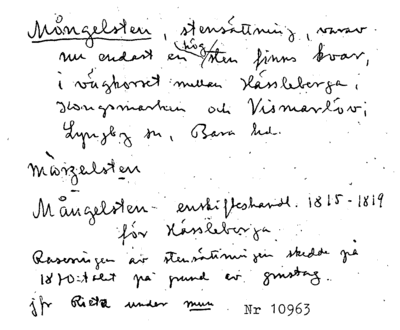 Mångelsten, stensättning, varav
nu endast en hög sten finns kvar,
i vägkorset mellan Hässleberga,
Kongsmarken och Vismarlöv;
Lyngby sn, Bara hd.
Mångelsten
Mångelsten - enskifteshandl. 1815-1819
för Hässleberga
Raseringen av stensättningen skedde på
1870-talet på grund av grustag
jfr Rietz under mun Nr 10963